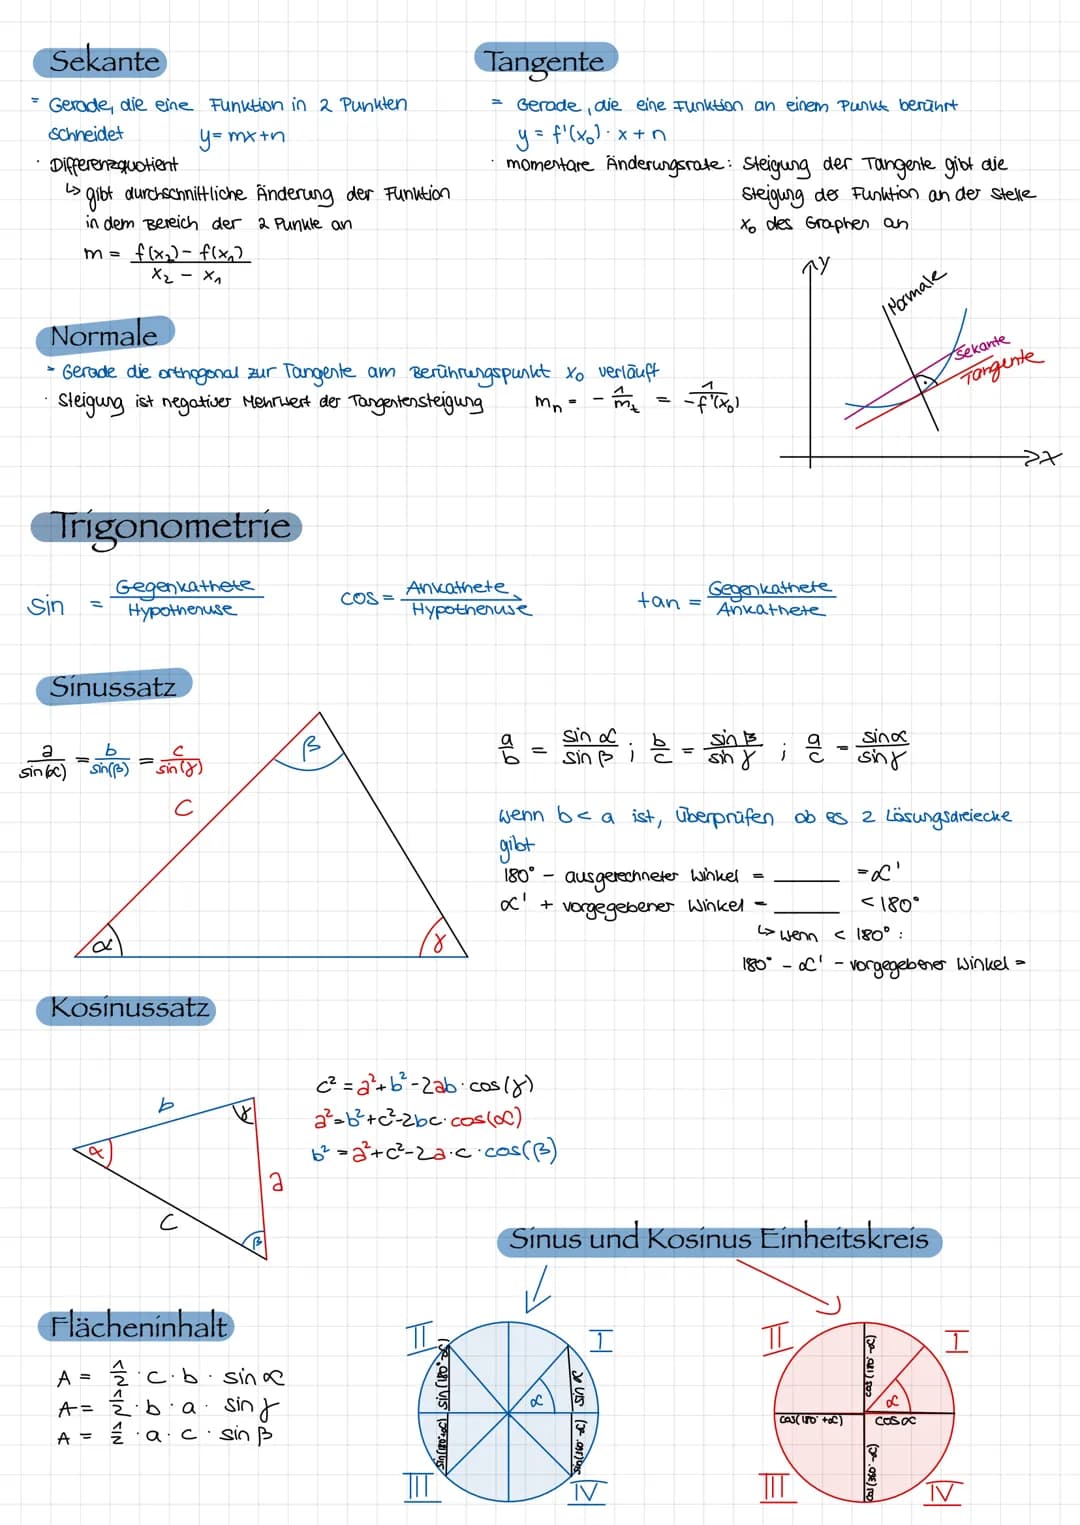 Sekante
= Gerade, die eine Funktion in 2 Punkten
schneidet y = mx+n
· Differenzquotient
↳ gibt durchschnittliche Änderung der Funktion
in dem Bereich der 2 Punkte an
m = f(x₂) - f(x₁) / x₂ - x₁
Tangente
= Gerade, die eine Funktion an einem Punkt berührt
y = f'(x₀) · x + n
· momentare Änderungsrate: Steigung der Tangente gibt die
Steigung der Funktion an der Stelle
x₀ des Graphen an
y
Normale
Sekante
Tangente
x
Normale
= Gerade die orthogonal zur Tangente am Berührungspunkt x₀ verläuft
· Steigung ist negativer Mehrwert der Tangentensteigung mₙ = - 1/mₜ = 1/-f'(x₀)
Trigonometrie
sin = Gegenkathete / Hypothenuse
cos = Ankathete / Hypothenuse
tan = Gegenkathete / Ankathete
Sinussatz
a/sin(α) = b/sin(β) = c/sin(γ)
β
c
α
γ
a/b = sin α/sin β ; b/c = sin β/sin γ ; a/c = sin α/sin γ
wenn b < a ist, überprüfen ob es 2 Lösungsdreiecke
gibt
180° - ausgerechneter Winkel = ______ = α'
α' + vorgegebener Winkel = ______ < 180°
↳ wenn < 180° :
180° - α' - vorgegebener Winkel =
Kosinussatz
b
γ
α
a
c
β
c² = a²+b²-2ab·cos(γ)
a²=b²+c²-2bc·cos(α)
b² = a²+c²-2a·c·cos(β)
Sinus und Kosinus Einheitskreis
Flächeninhalt
A = 1/2 · c · b · sin α
A = 1/2 · b · a · sin γ
A = 1/2 · a · c · sin β
II
I
sin(180°-α)
sin α
α
sin(180°+α)
sin(360°-α)
III
IV
II
I
cos(180°-α)
α
cos(180°+α)
cos α
cos(360°-α)
III
IV